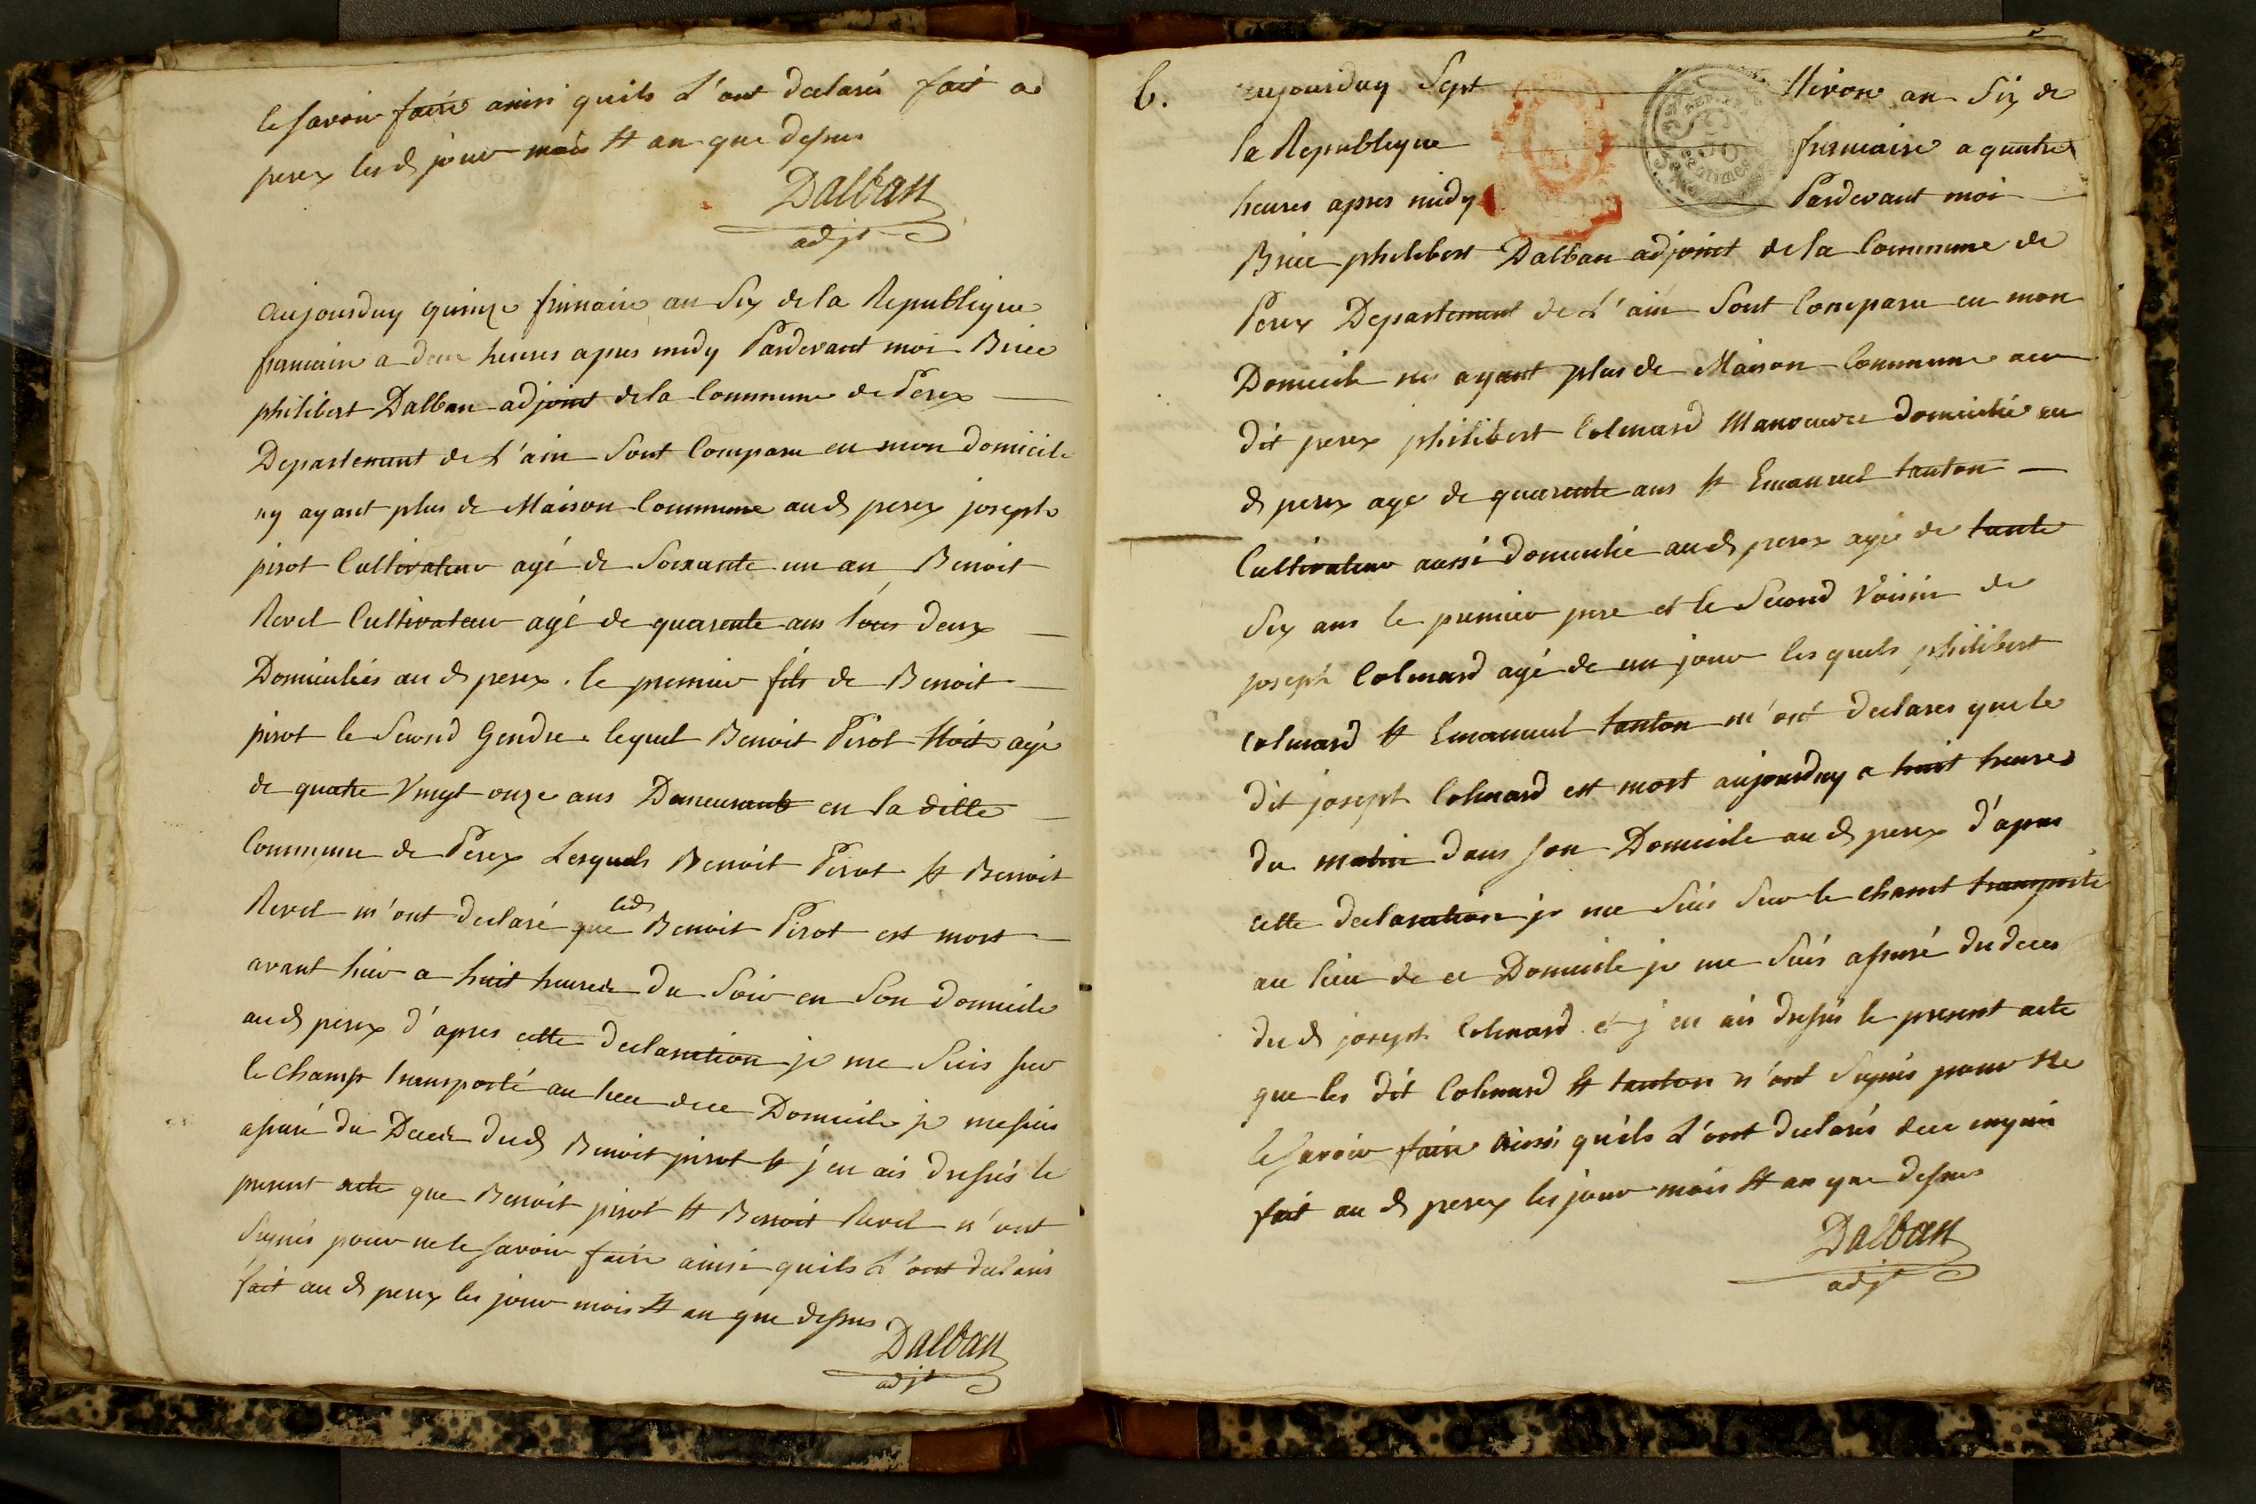 le savoir faire ainsi quils L'ont declarés fait a
perex les d jour mois et an que dessus
Dalban
adjt
aujourduy quinze frimaire an Six de la Republique
francaise a deux heures apres midy Pardevant moi Brice
philibert Dalban adjoint de la Commune de Perex
Departement de L'ain Sont Comparu en mon domicile
ny ayant plus de Maison Commune aud perex joseph
pirot Cultivateur agé de Soixante un an Benoit
Revel Cultivateur agé de quarente ans tous deux
Domiciliés au d perex . le premier fils de Benoit
pirot le Second Gendre lequel Benoit Pirot etoit agé
de quatre Vingt onze ans Demeurant en la ditte
Commune de Perex Lesquels Benoit Pirot et Benoit
Revel m'ont declaré que led Benoit Pirot est mort
avant hier a huit heures du Soir en Son domicile
au d perex d'apres cette declaration je me Suis sur
le champ transporté au lieu de ce Domicile je me suis
assuré du Decede dud Benoit pirot et j'en ais dressés le
present acte que Benoit pirot et Benoit Revel n'ont
Signés pour ne le savoir faire ainsi quils L'ont declarés
fait au d perex les jour mois et an que dessus
Dalban
adjt
6. aujourduy Sept Nivose an Six de
la Republique francaise a quatre
heures apres midy Pardevant moi
Brice philibert Dalban adjoint de la Commune de
Perex Departement de L'ain Sont Comparu en mon
Domicile ne ayant plus de Maison Commune au
dit perex philibert Colmard Manoeuvre domicilié au
d perex age de quarente ans et Emanuel tanton
Cultivateur aussi domicilié au d perex agé de tante
Six ans le premier pere et le Second Voisin de
joseph Colmard agé de un jour les quels philibert
Colmard et Emanuel tanton m'ont declares que le
dit joseph Colmard est mort aujourduy a huit heures
du matin dans son Domicile au d perex d'apres
cette declaration je me Suis Sur le chamt transporté
au lieu de ce Domicile je me Suis assuré du deces
du d joseph Colmard et j'en ais dressés le present acte
que les dit Colmard et tanton n'ont Signés pour ne
le savoir faire ainsi quils L'ont declarés de ce enquis
fait au d perex les jour mois et an que dessus
Dalban
adjt